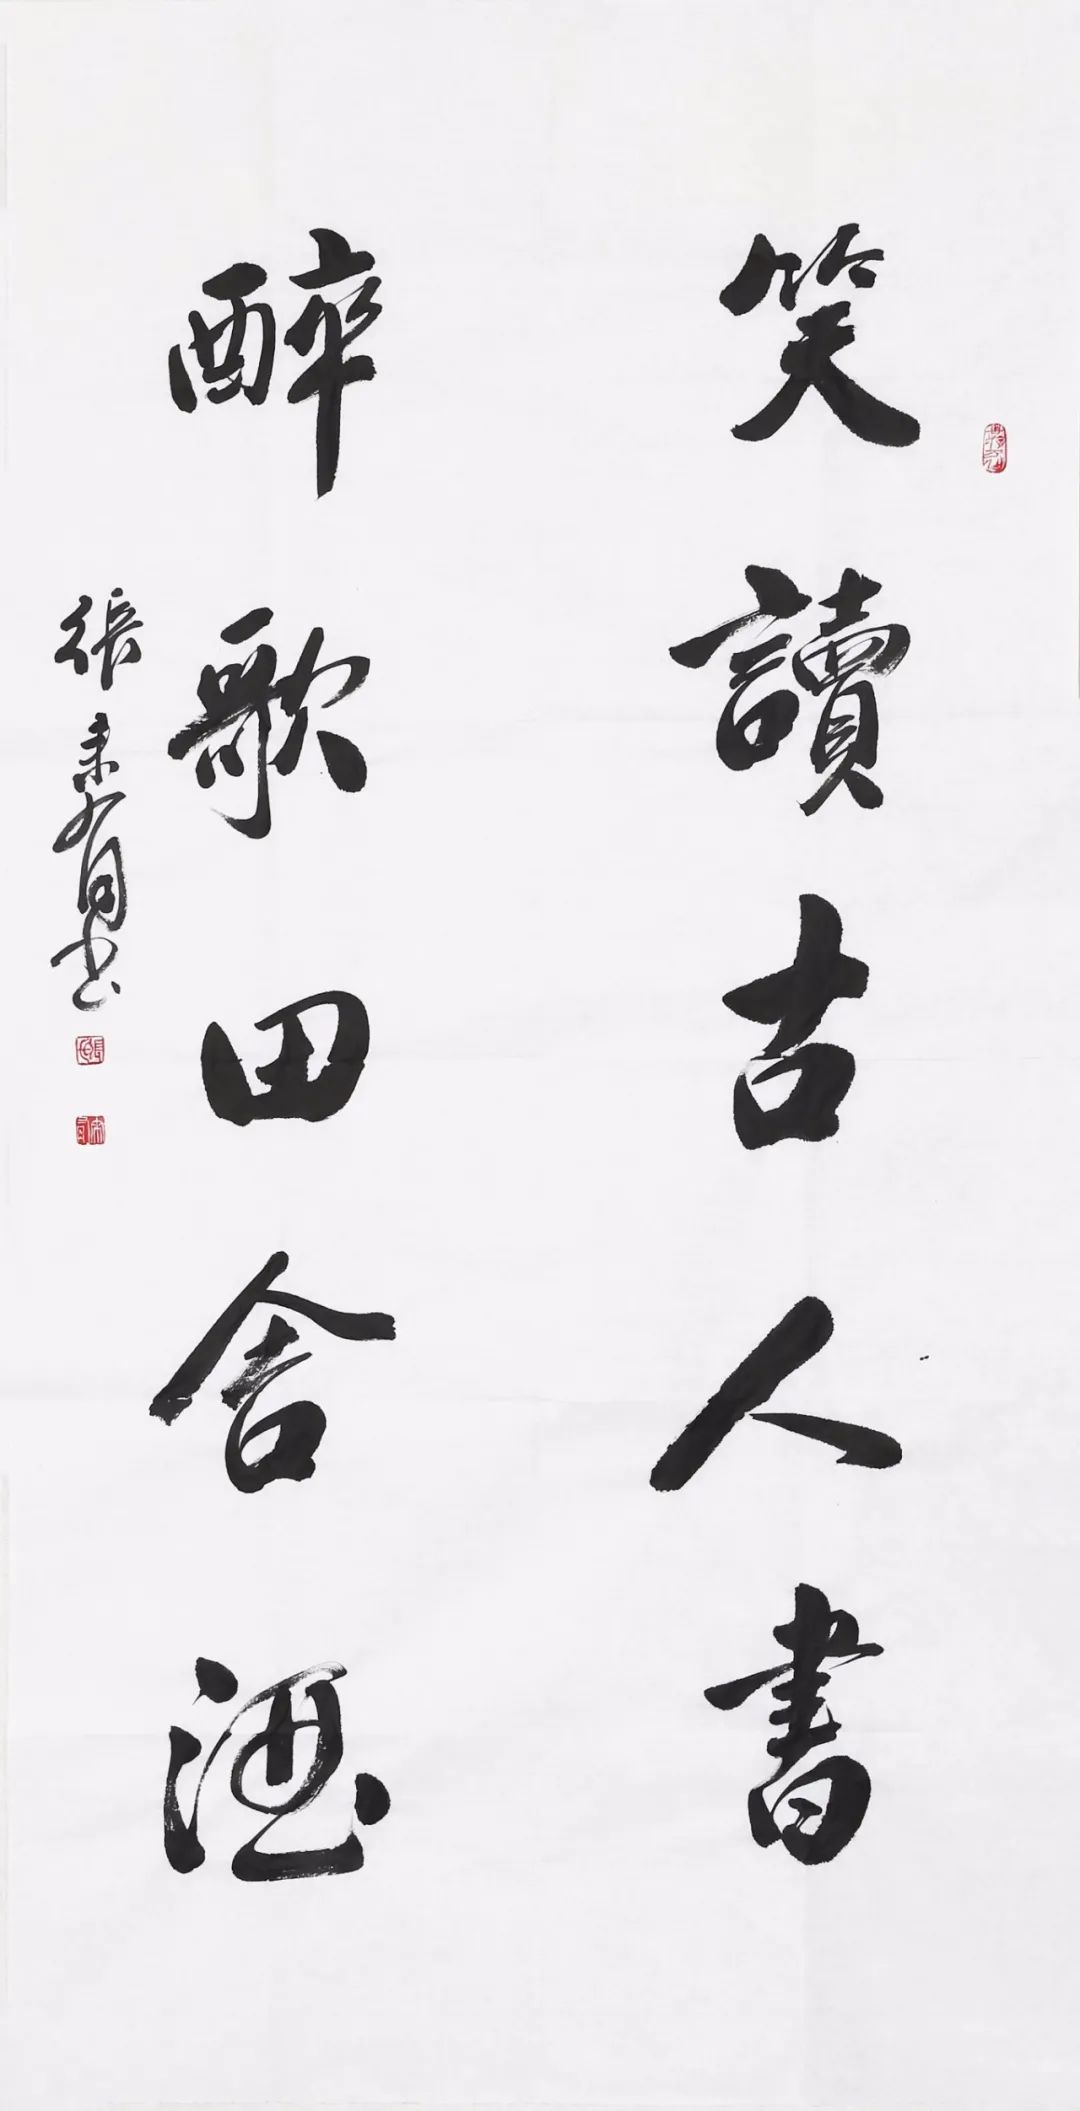 笑讀古人書
醉歌田舍酒
張
書